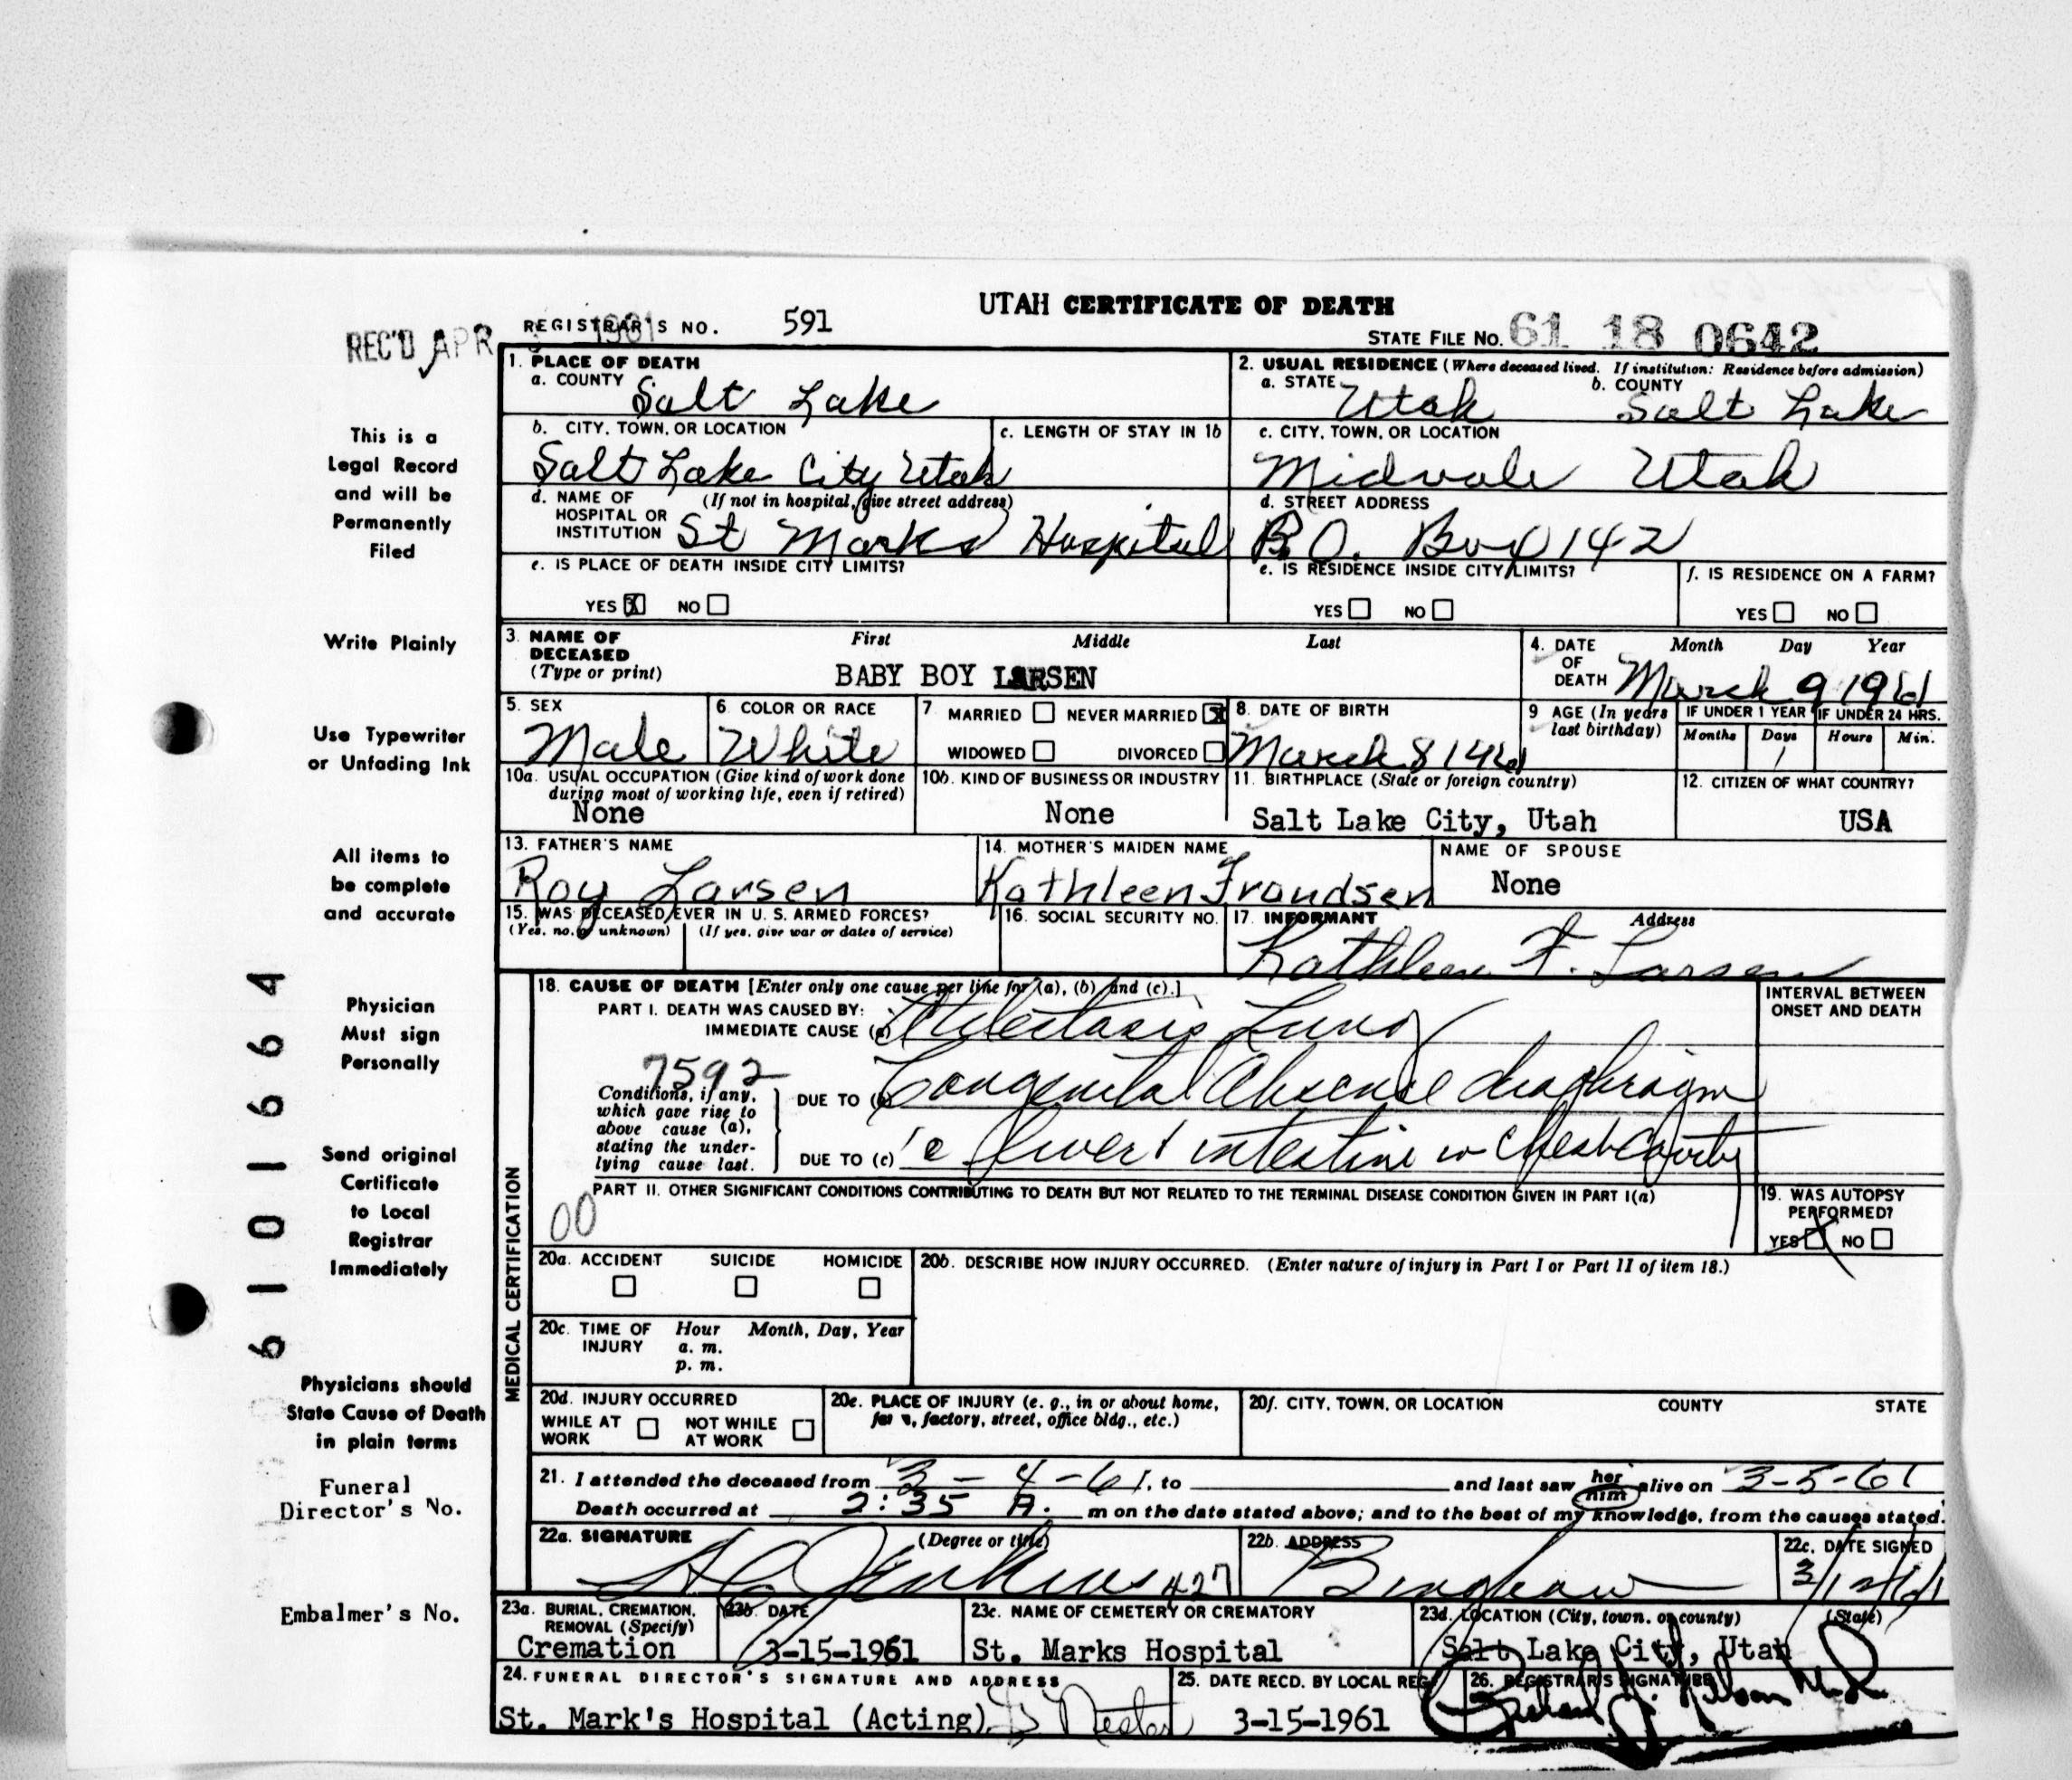 UTAH CERTIFICATE OF DEATH
REC'D APR 1961
REGISTRAR'S NO. 591
STATE FILE No. 61 18 0642
This is a
Legal Record
and will be
Permanently
Filed
Write Plainly
Use Typewriter
or Unfading Ink
All items to
be complete
and accurate
Physician
Must sign
Personally
Send original
Certificate
to Local
Registrar
Immediately
Physicians should
State Cause of Death
in plain terms
Funeral
Director's No.
Embalmer's No.
6101664
1. PLACE OF DEATH
a. COUNTY Salt Lake
2. USUAL RESIDENCE (Where deceased lived. If institution: Residence before admission)
a. STATE Utah b. COUNTY Salt Lake
b. CITY, TOWN, OR LOCATION
Salt Lake City Utah
c. LENGTH OF STAY IN 1b
c. CITY, TOWN, OR LOCATION
Midvale Utah
d. NAME OF (If not in hospital, give street address)
HOSPITAL OR
INSTITUTION St Marks Hospital
d. STREET ADDRESS
P.O. Box 142
e. IS PLACE OF DEATH INSIDE CITY LIMITS?
YES X NO
e. IS RESIDENCE INSIDE CITY LIMITS?
YES NO
f. IS RESIDENCE ON A FARM?
YES NO
3. NAME OF First Middle Last
DECEASED
(Type or print) BABY BOY LARSEN
4. DATE Month Day Year
OF
DEATH March 9 1961
5. SEX
Male
6. COLOR OR RACE
White
7 MARRIED NEVER MARRIED X
WIDOWED DIVORCED
8. DATE OF BIRTH
March 8 1961
9 AGE (In years
last birthday)
IF UNDER 1 YEAR IF UNDER 24 HRS.
Months Days Hours Min.
1
10a. USUAL OCCUPATION (Give kind of work done
during most of working life, even if retired)
None
10b. KIND OF BUSINESS OR INDUSTRY
None
11. BIRTHPLACE (State or foreign country)
Salt Lake City, Utah
12. CITIZEN OF WHAT COUNTRY?
USA
13. FATHER'S NAME
Roy Larsen
14. MOTHER'S MAIDEN NAME
Kathleen Frandsen
NAME OF SPOUSE
None
15. WAS DECEASED EVER IN U. S. ARMED FORCES?
(Yes, no, or unknown) (If yes, give war or dates of service)
16. SOCIAL SECURITY NO.
17. INFORMANT Address
Kathleen F. Larsen
MEDICAL CERTIFICATION
18. CAUSE OF DEATH [Enter only one cause per line for (a), (b), and (c).]
PART I. DEATH WAS CAUSED BY:
IMMEDIATE CAUSE (a) Atelectasis Lung
INTERVAL BETWEEN
ONSET AND DEATH
7592
Conditions, if any,
which gave rise to
above cause (a),
stating the under-
lying cause last.
DUE TO (b) Congenital Absence diaphragm
DUE TO (c) c liver & intestine in Chest Cavity
PART II. OTHER SIGNIFICANT CONDITIONS CONTRIBUTING TO DEATH BUT NOT RELATED TO THE TERMINAL DISEASE CONDITION GIVEN IN PART I(a)
00
19. WAS AUTOPSY
PERFORMED?
YES X NO
20a. ACCIDENT SUICIDE HOMICIDE
20b. DESCRIBE HOW INJURY OCCURRED. (Enter nature of injury in Part I or Part II of item 18.)
20c. TIME OF Hour Month, Day, Year
INJURY a. m.
p. m.
20d. INJURY OCCURRED
WHILE AT NOT WHILE
WORK AT WORK
20e. PLACE OF INJURY (e. g., in or about home,
farm, factory, street, office bldg., etc.)
20f. CITY, TOWN, OR LOCATION COUNTY STATE
21. I attended the deceased from 3-4-61, to and last saw her him alive on 3-5-61
Death occurred at 2:35 A. m on the date stated above; and to the best of my knowledge, from the causes stated.
22a. SIGNATURE (Degree or title)
Jenkins 427
22b. ADDRESS
Bingham
22c. DATE SIGNED
23a. BURIAL, CREMATION,
REMOVAL (Specify)
Cremation
23b. DATE
3-15-1961
23c. NAME OF CEMETERY OR CREMATORY
St. Marks Hospital
23d. LOCATION (City, town, or county) (State)
Salt Lake City, Utah
24. FUNERAL DIRECTOR'S SIGNATURE AND ADDRESS
St. Mark's Hospital (Acting)
25. DATE RECD. BY LOCAL REG.
3-15-1961
26. REGISTRAR'S SIGNATURE